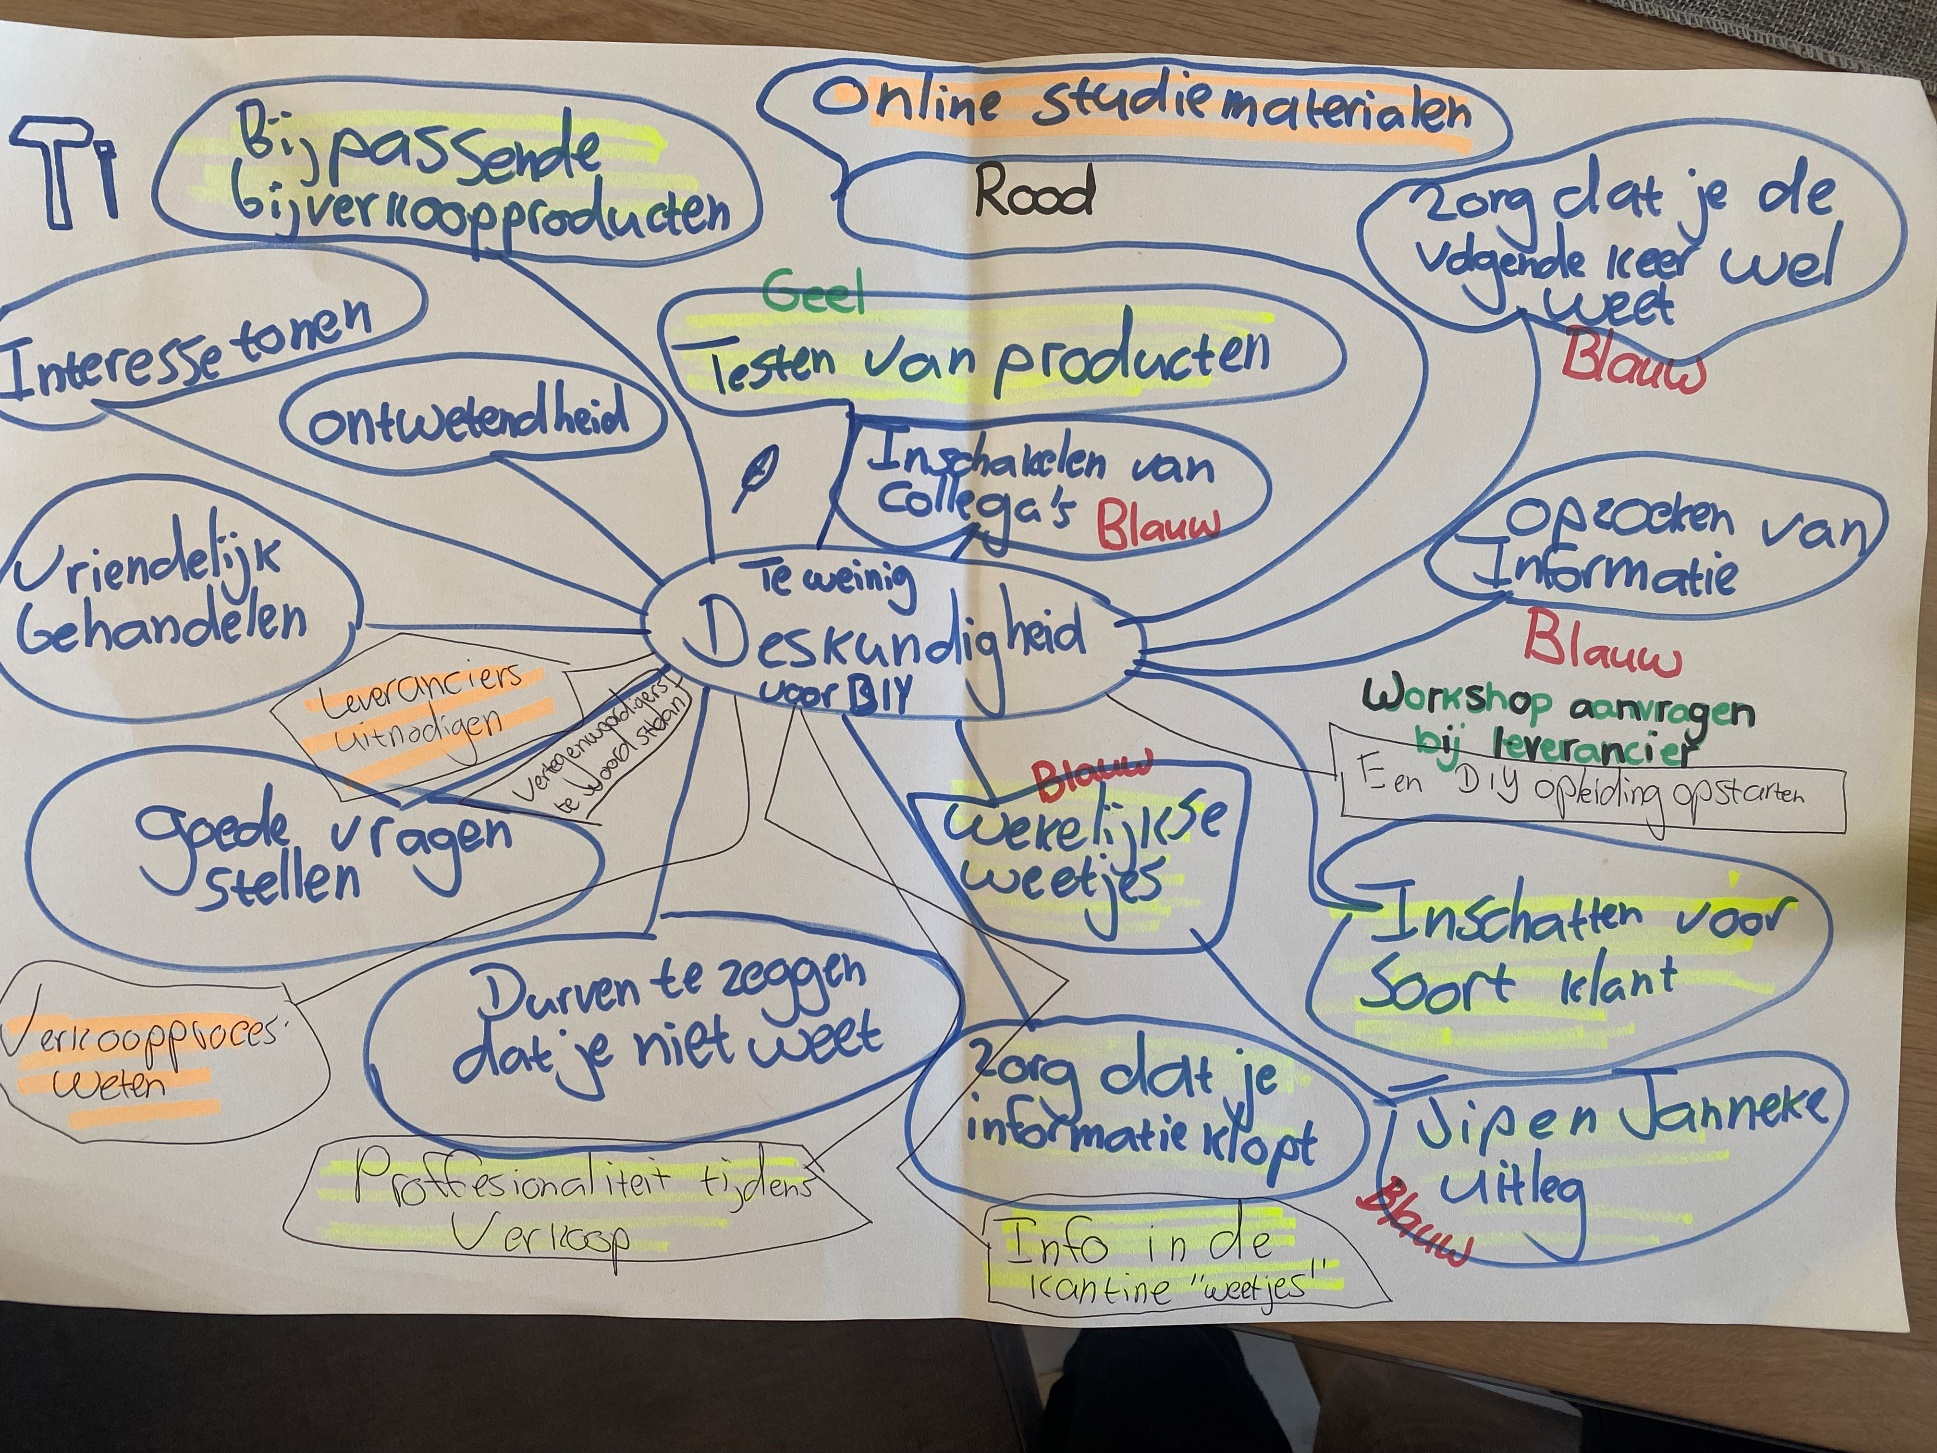 Bijpassende
bijverkoopproducten
Online studiematerialen
Rood
Zorg dat je de
volgende keer wel
weet
Blauw
Interesse tonen
Geel
Testen van producten
ontwetendheid
Inschakelen van
collega's Blauw
opzoeken van
Informatie
Blauw
Vriendelijk
behandelen
Te weinig
Deskundigheid
voor DIY
Leveranciers
uitnodigen
Vertegenwoordigers
te woord staan
Workshop aanvragen
bij leverancier
Een DIY opleiding opstarten
goede vragen
stellen
Blauw
wekelijkse
weetjes
Inschatten voor
Soort klant
Verkoopproces
weten
Durven te zeggen
dat je niet weet
Zorg dat je
informatie klopt
Jip en Janneke
uitleg
Blauw
Proffesionaliteit tijdens
Verkoop
Info in de
kantine "weetjes"